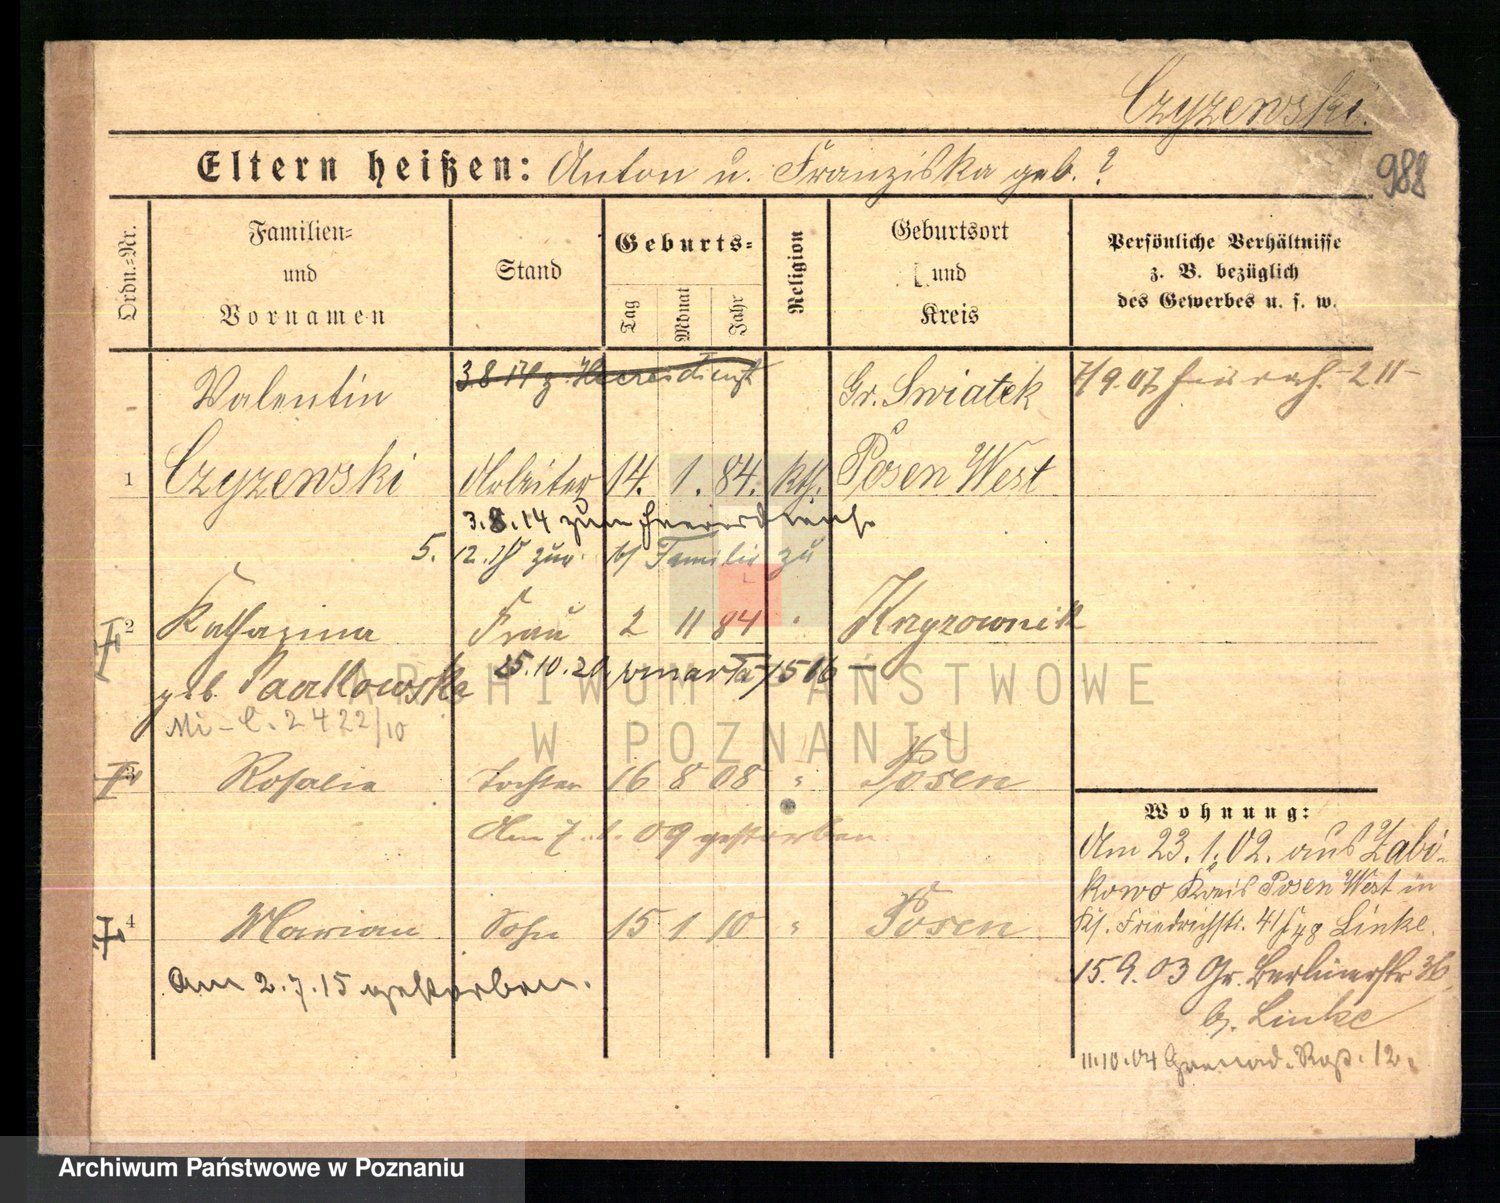 Czyzewski.
Eltern heißen: Anton u. Franziska geb. ?
988
Ordn.=Nr.
Familien=
und
Vornamen
Stand
Geburts=
Tag
Monat
Jahr
Religion
Geburtsort
und
Kreis
Persönliche Verhältnisse
z. B. bezüglich
des Gewerbes u. s. w.
3 8 14 z. Heeresdienst
Valentin Gr. Swiatek 7/9.07
1 Czyzewski Arbeiter 14. 1. 84. kth. Posen West
3.8.14 zum Heeresdienst
5. 12. zur Familie zu
2 Katharina Frau 2 11 84 " Krzyzownik
geb. Pawlowska 25.10.20
2422/10
3 Rosalie Tochter 16 8 08 " Posen
Am 7. 1. 09 gestorben
4 Marian Sohn 15 1 10 " Posen
Am 2.7.15 gestorben.
Wohnung:
Am 23.1.02. aus Zabi-
kowo Kreis Posen West in
Friedrichstr. Linke.
15.9.03 Gr. Berlinerstr 36
b. Linke
11.10.04 Grenad. 12.
ARCHIWUM PAŃSTWOWE
W POZNANIU
Archiwum Państwowe w Poznaniu